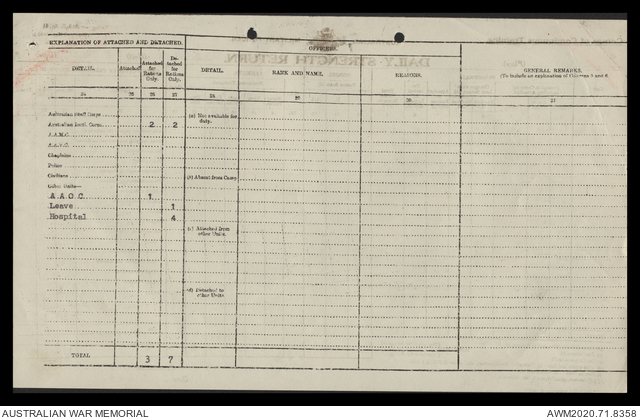 EXPLANATION OF ATTACHED AND DETACHED.
OFFICERS.
DAILY STRENGTH RETURN.
DETAIL.
Attached
Attached for Rations Only.
Detached for Rations Only.
DETAIL.
RANK AND NAME.
REASONS.
GENERAL REMARKS.
(To include an explanation of Columns 5 and 6
24
25
26
27
Australian Staff Corps
Australian Instl. Corps 2 2
(a) Not available for duty.
A.A.M.C.
A.A.V.C.
Chaplains
Police
Civilians
(b) Absent from Camp
Other Units—
A A O C 1
Leave 1
Hospital 4
(c) Attached from other Units.
(d) Detached to other Units
TOTAL 3 7
AUSTRALIAN WAR MEMORIAL
AWM2020.71.8358